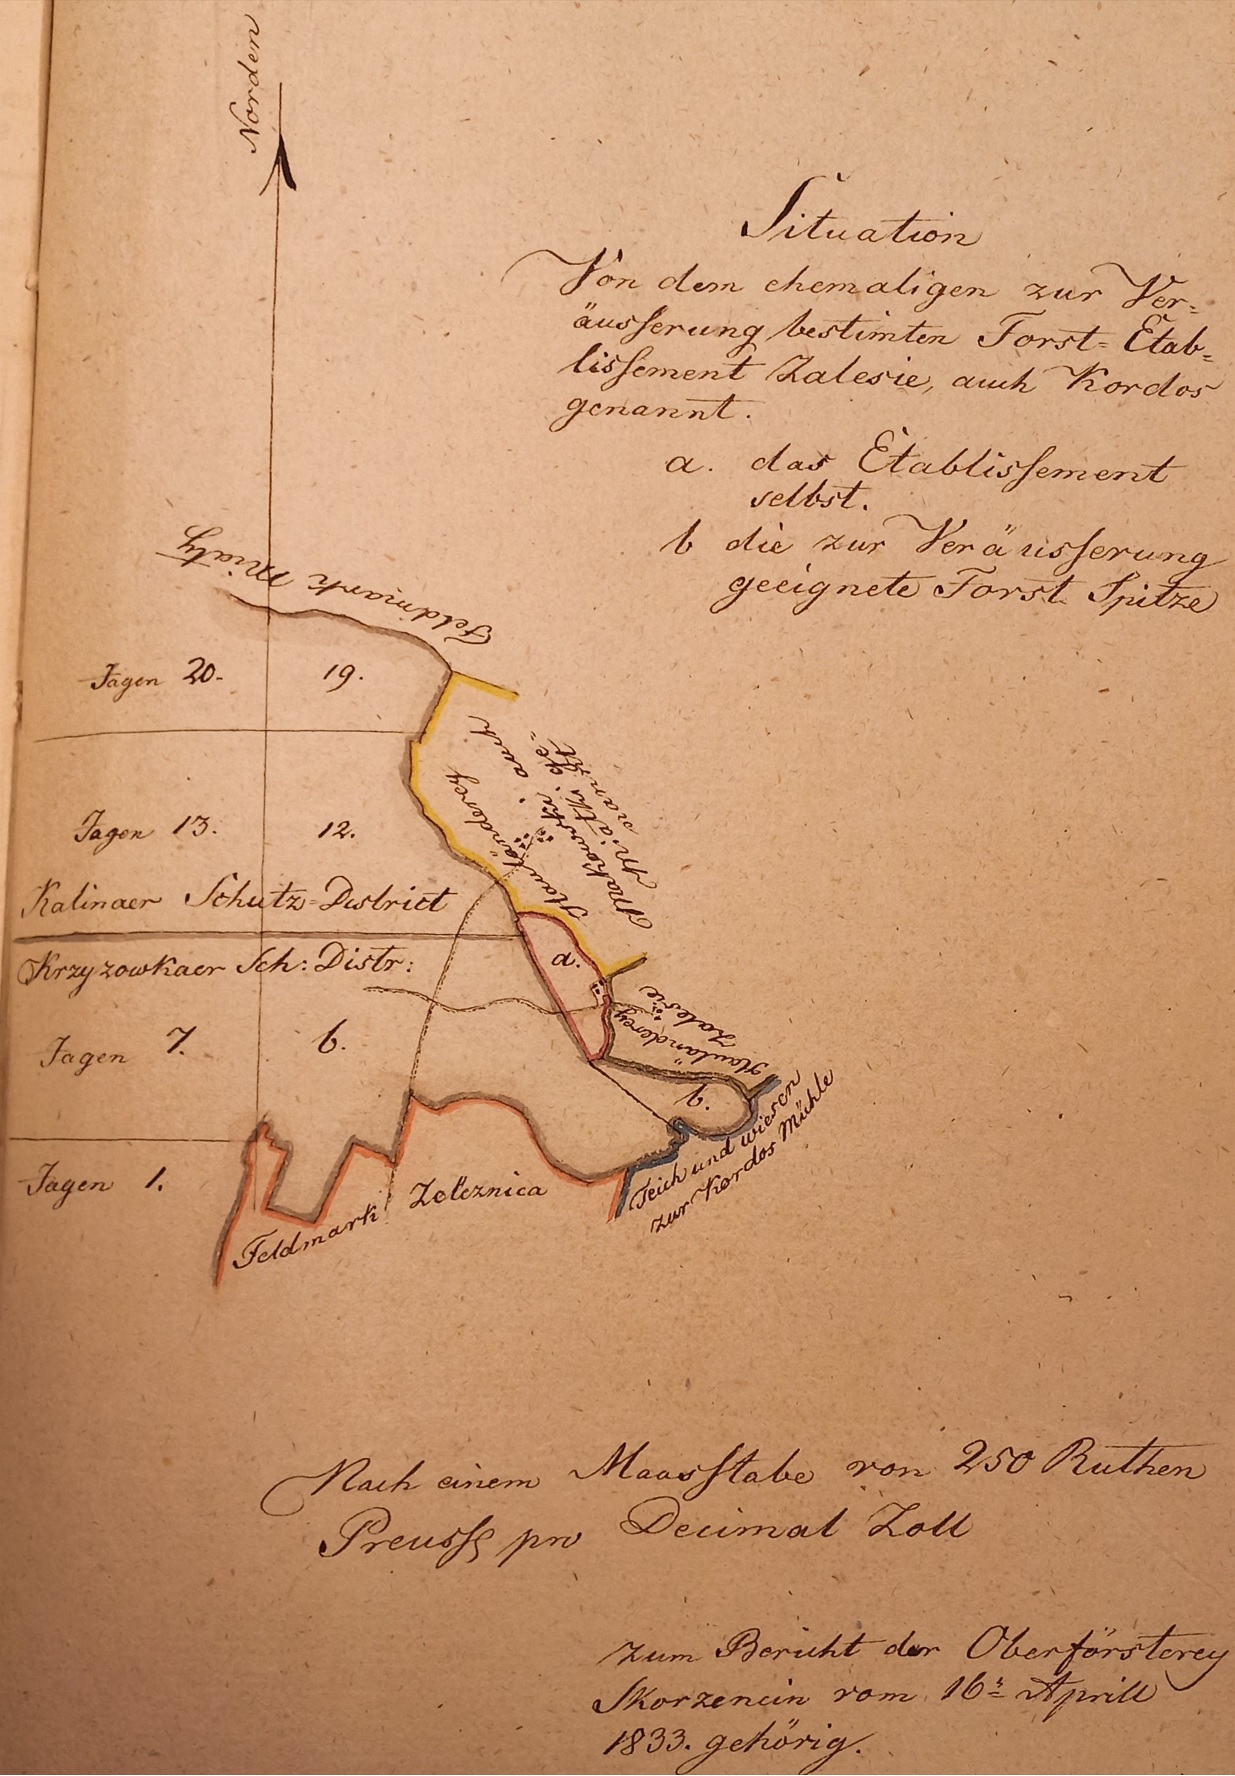 Norden
Situation
Von dem ehemaligen zur Ver=
äusserung bestimten Forst=Etab=
lissement Zalesie, auch Kordos
genannt.
a. das Etablissement
selbst.
b die zur Veräusserung
geeignete Forst Spitze
Feldmark Mialy
Jagen 20.
19.
Hauländerey
Makowski auch
Mialki ge=
nannt
Jagen 13.
12.
Kalinaer Schutz=District
Krzyzowkaer Sch: Distr:
a.
Hauländerey
Zalesie
Jagen 7.
6.
b.
Teich und wiesen
zur Kordos Mühle
Jagen 1.
Feldmark Zeleznica
Nach einem Maasstabe von 250 Ruthen
Preuss pro Decimal Zoll
zum Bericht der Oberförsterey
Skorzencin vom 16t Aprill
1833. gehörig.